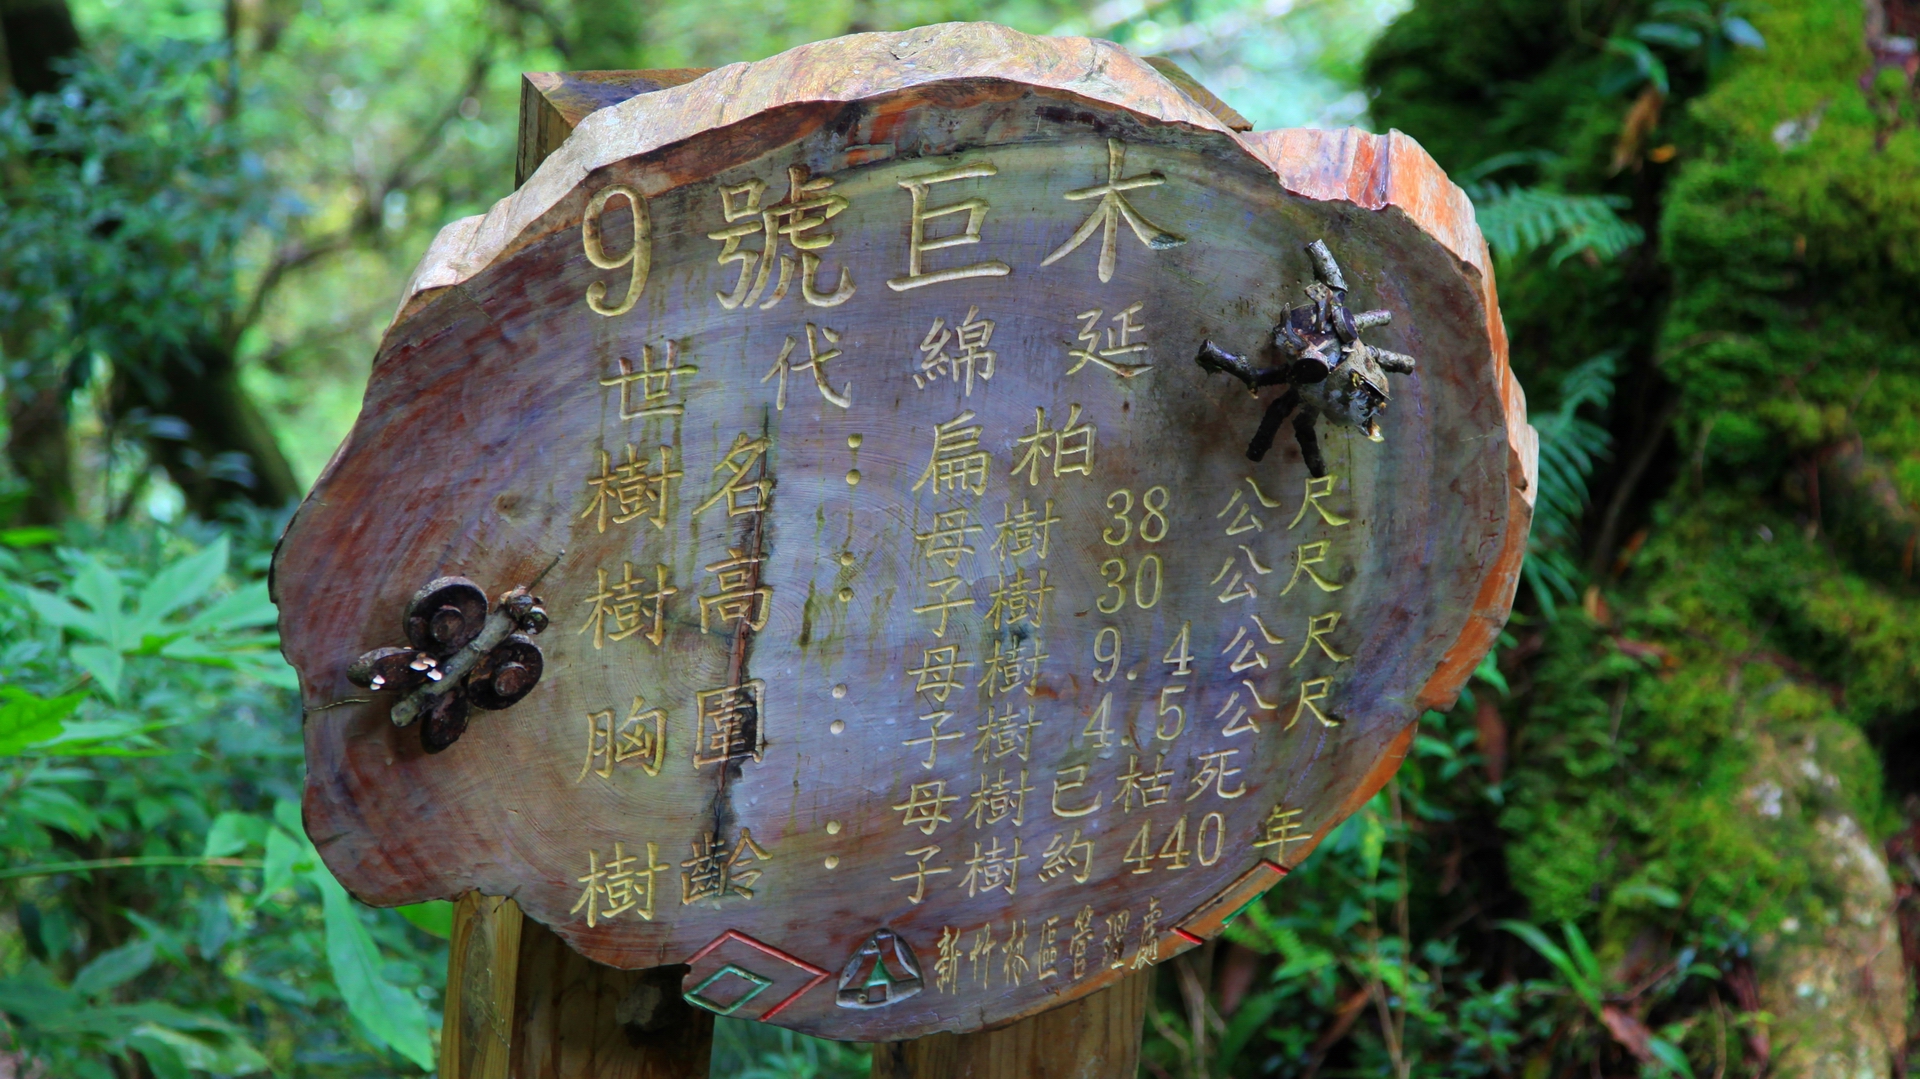 9號巨木
世代綿延
樹名：扁柏
樹高：母樹 38 公尺
子樹 30 公尺
胸圍：母樹 9.4 公尺
子樹 4.5 公尺
樹齡：母樹已枯死
子樹約 440 年
新竹林區管理處